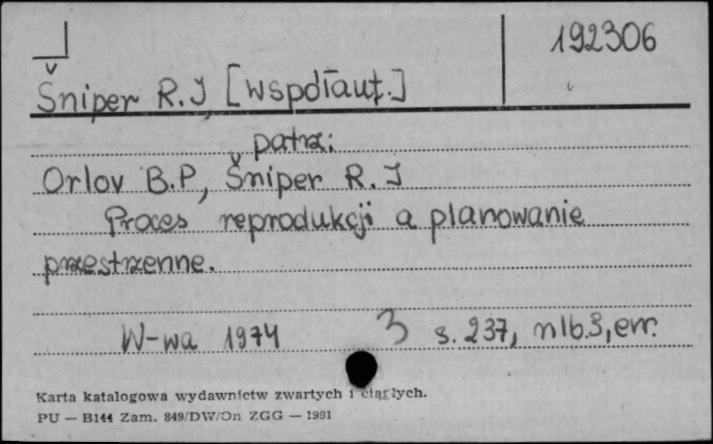 192306
Šniper R.I, [współaut.]
patrz:
Orlov B.P, Šniper R.I
Proces reprodukcji a planowanie
przestrzenne.
W-wa 1974 3 s. 237, nlb.3, err.
Karta katalogowa wydawnictw zwartych i ciągłych.
PU — B144 Zam. 849/DW/On ZGG — 1991